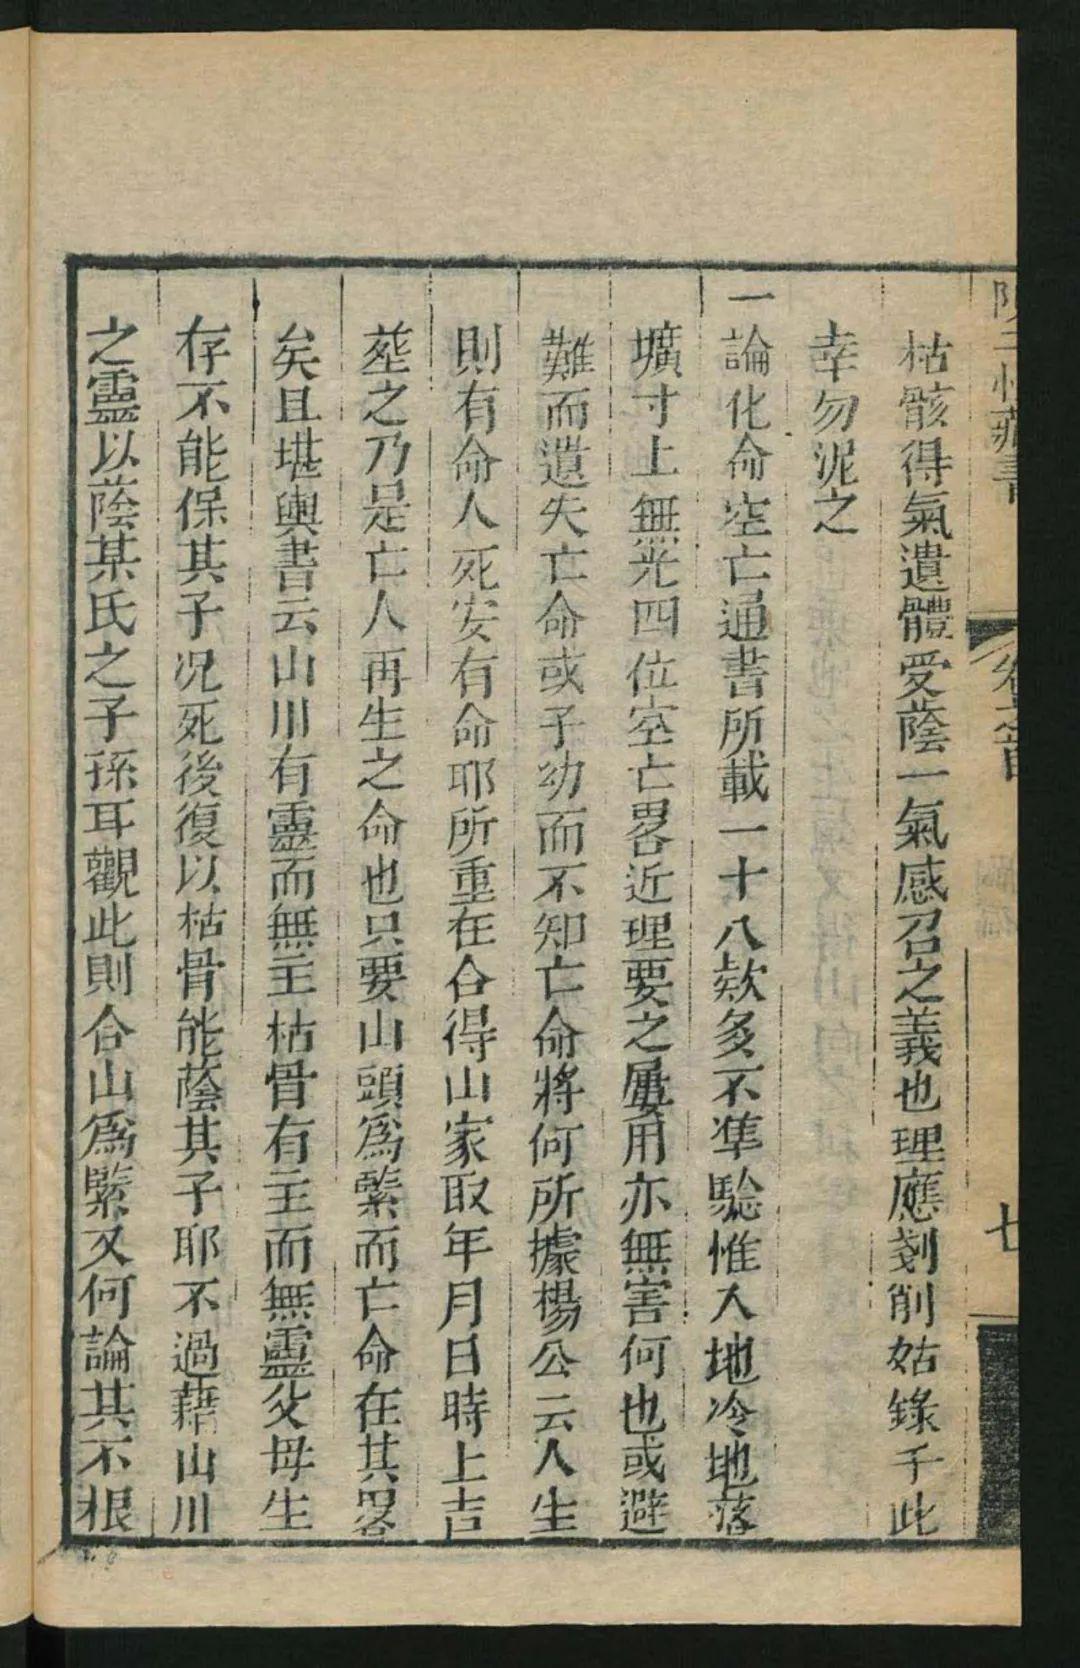 枯骸得氣遺體受蔭一氣感召之義也理應剗削姑錄于此
幸勿泥之
一論化命空亡通書所載一十八欵多不準驗惟入地冷地落
壙寸土無光四位空亡畧近理要之屢用亦無害何也或避
難而遺失亡命或子幼而不知亡命將何所據楊公云人生
則有命人死安有命耶所重在合得山家取年月日時上吉
塟之乃是亡人再生之命也只要山頭爲緊而亡命在其畧
矣且堪輿書云山川有靈而無主枯骨有主而無靈父母生
存不能保其子况死後復以枯骨能蔭其子耶不過藉山川
之靈以蔭某氏之子孫耳觀此則合山爲緊又何論其不根